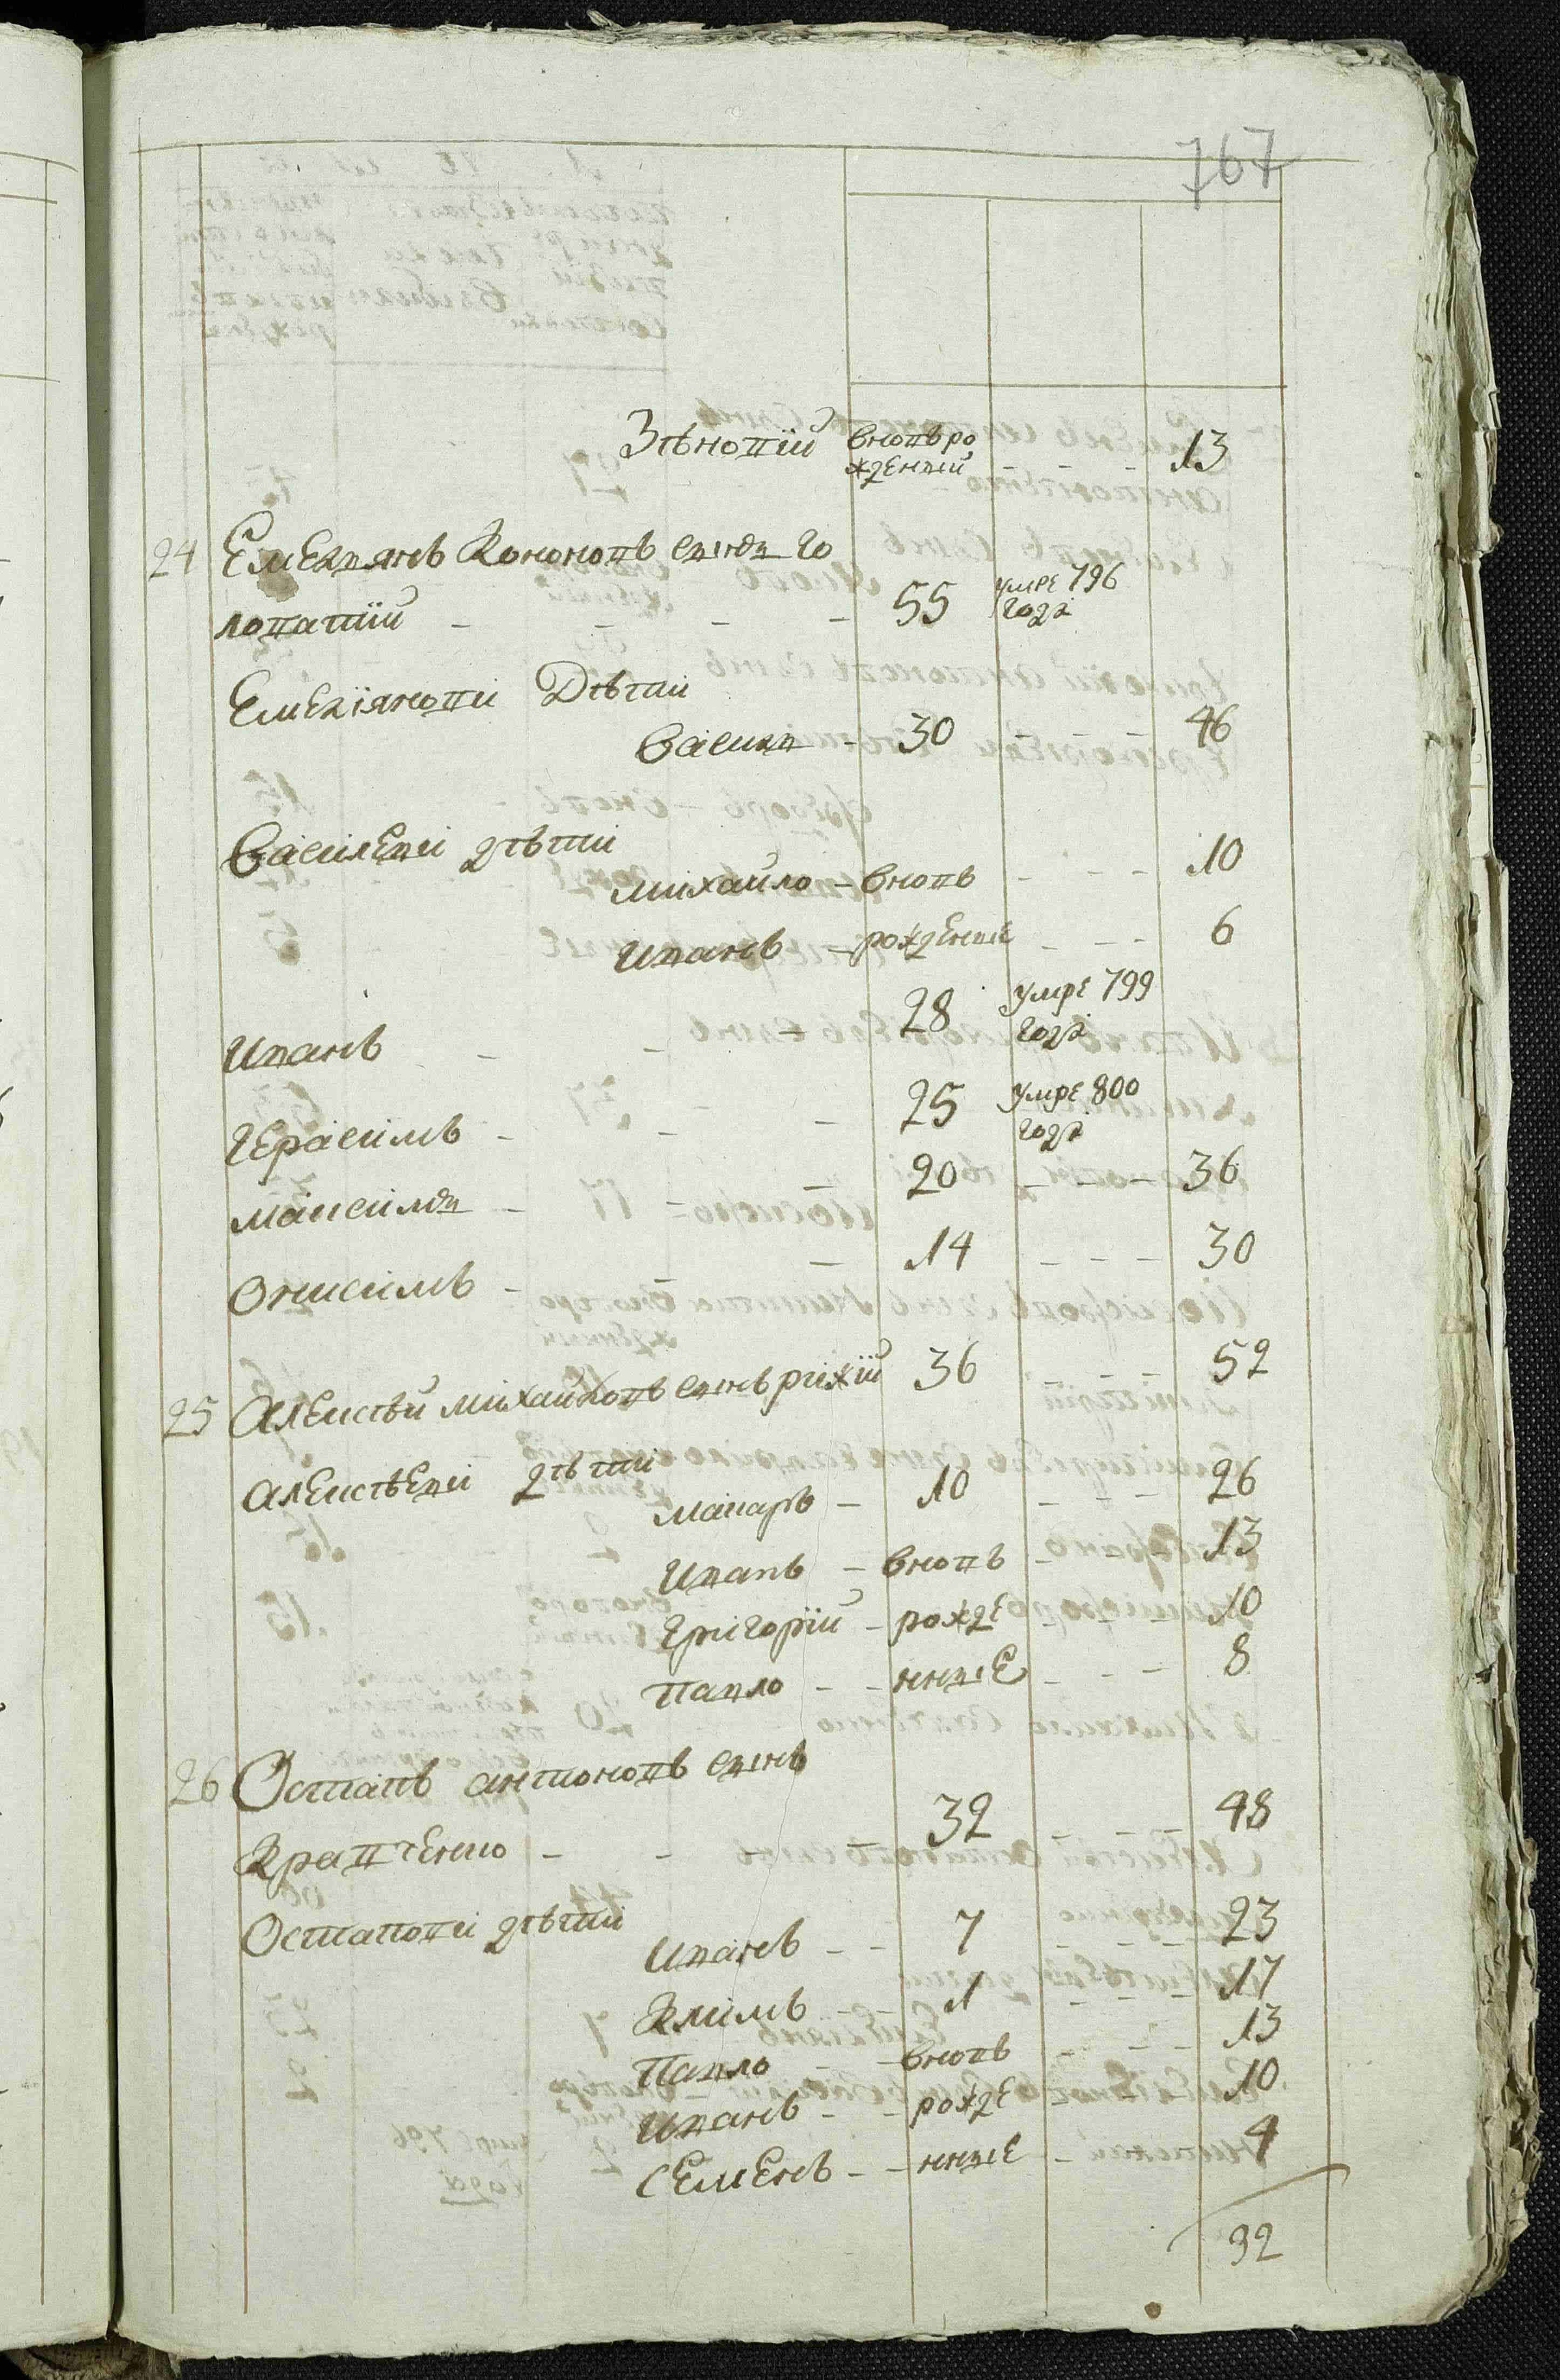 767
Зѣновїй вновъ ро 13
жденый
24 Емелянъ Кононовъ сынъ Го
ловатїй - - - - 55 умре 796
года
Емелїянови Дѣти
Василь - 30 - - 46
Василеви дѣти
михайло - вновъ - - - 10
Иванъ - рожденые - - - 6
Иванъ - - 28 умре 799
года
Герасимъ - - - 25 умре 800
года
Максимъ - - 20 - - - 36
Онисимъ - - - 14 - - - 30
25 Алексѣй михайловъ сынъ рижїй 36 - - - 52
Алексѣеви дѣти
макаръ - 10 - - - 26
Иванъ - вновъ - - 13
Григорїй - рожде - - - 10
Павло - - нные - - - 8
26 Остапъ антоновъ сынъ
Кравченко - - - 32 - - 48
Остапови дѣти
Иванъ - - 7 - - - 23
Климъ - - 1 - - - 17
Павло - - вновъ - - - 13
Иванъ - - рожде - - - 10
Семенъ - - нные - 4
92